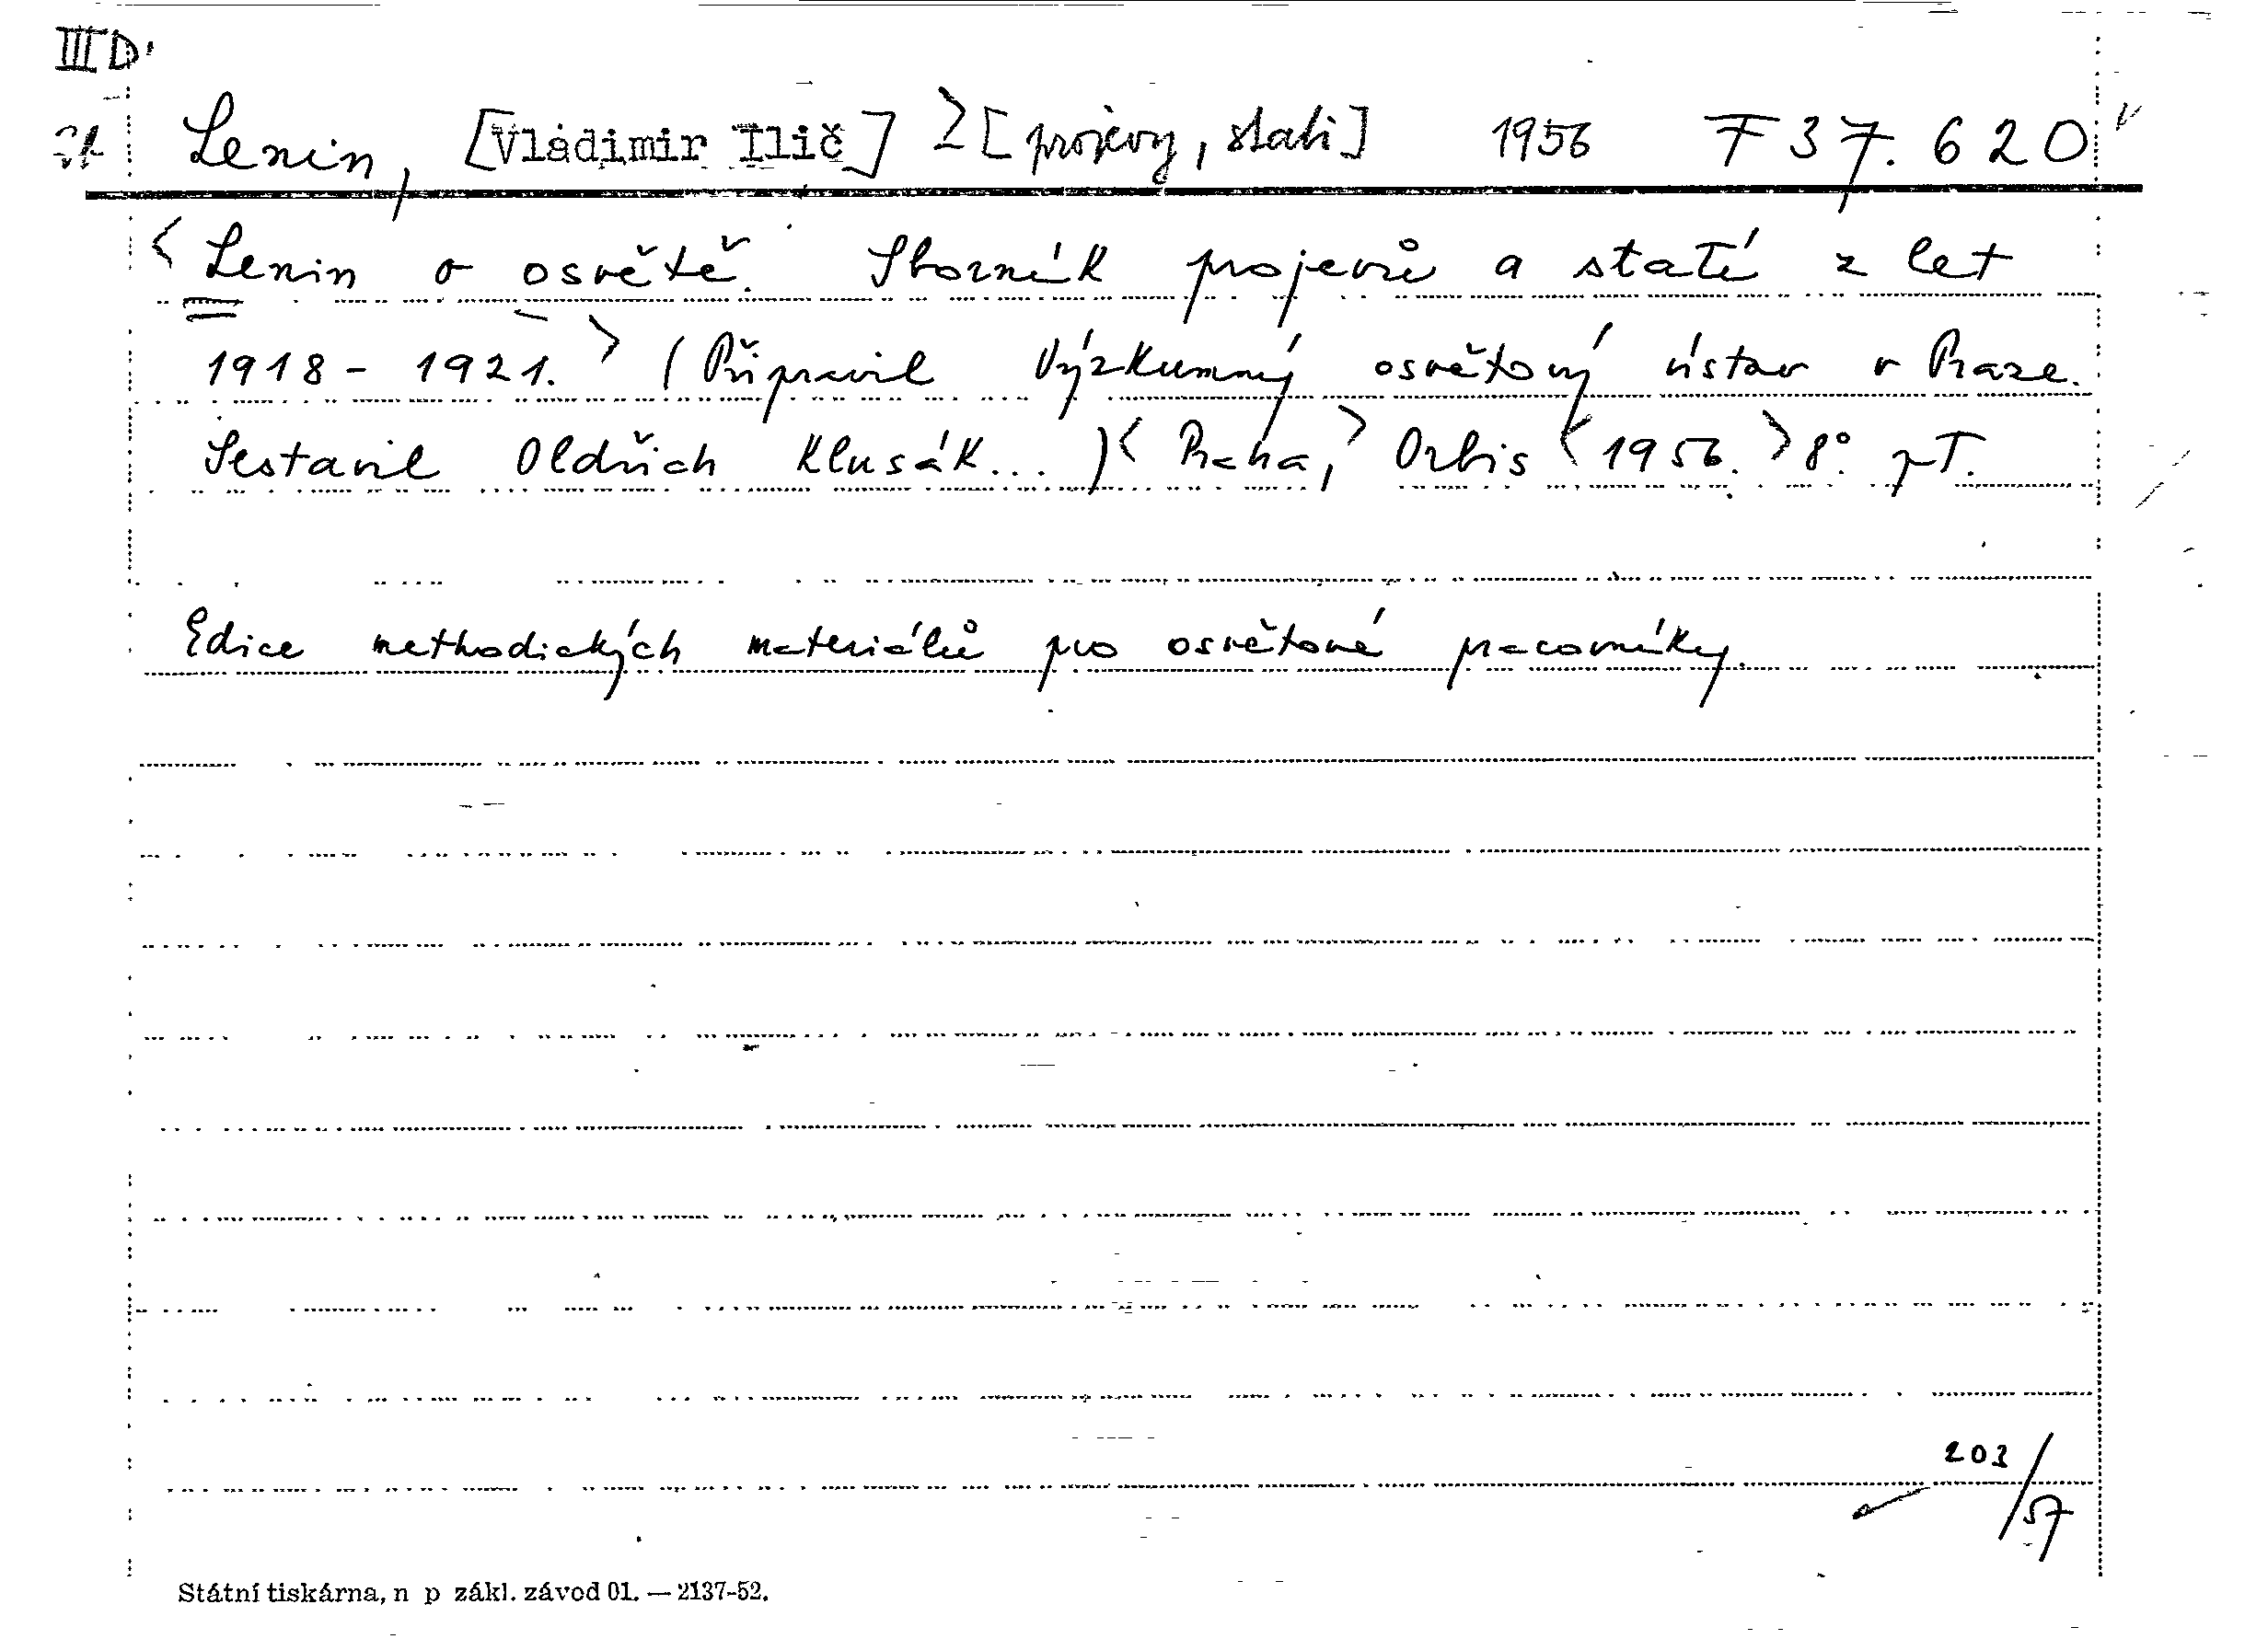 III D
Lenin, [Vladimir Ilič] > [projevy, stati] 1956 F 37.620
<Lenin o osvětě. Sborník projevů a statí z let
1918 - 1921.> (Připravil Výzkumný osvětový ústav v Praze.
Sestavil Oldřich Klusák...) <Praha,> Orbis <1956.> 8°. pT.
Edice methodických materiálů pro osvětové pracovníky.
203/57
Státní tiskárna, n p zákl. závod 01. — 2137-52.